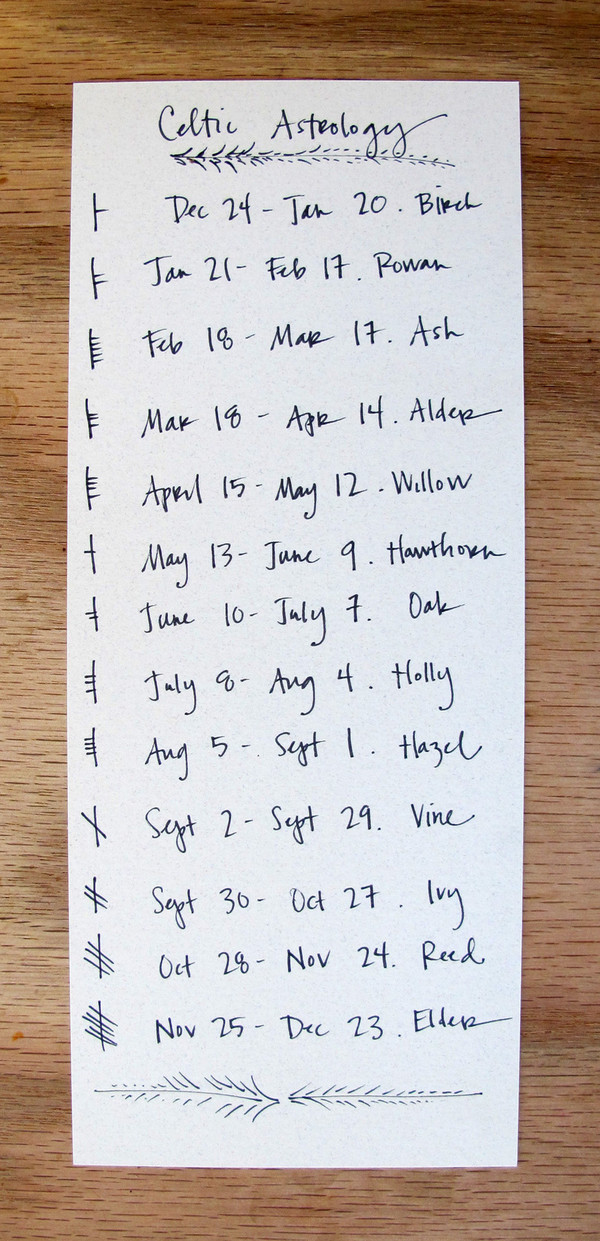 Celtic Astrology
Dec 24 - Jan 20. Birch
Jan 21 - Feb 17. Rowan
Feb 18 - Mar 17. Ash
Mar 18 - Apr 14. Alder
April 15 - May 12. Willow
May 13 - June 9. Hawthorn
June 10 - July 7. Oak
July 8 - Aug 4. Holly
Aug 5 - Sept 1. Hazel
Sept 2 - Sept 29. Vine
Sept 30 - Oct 27. Ivy
Oct 28 - Nov 24. Reed
Nov 25 - Dec 23. Elder